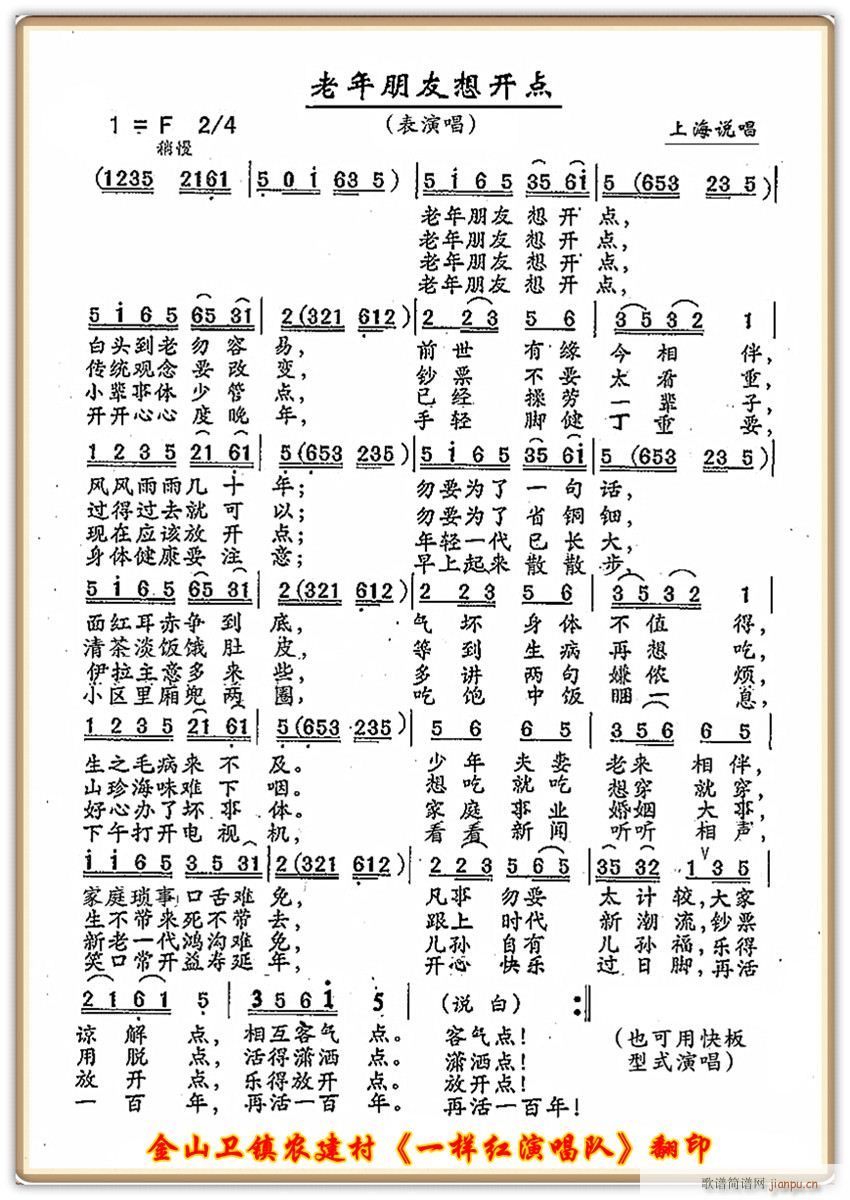 老年朋友想开点
1 = F 2/4
(表演唱)
上海说唱
稍慢
(1235 2161 | 5 0 i 63 5) | 5 i 6 5 35 6i | 5 (653 23 5) |
老年朋友 想开 点,
老年朋友 想开 点,
老年朋友 想开 点,
老年朋友 想开 点,
5 i 6 5 65 31 | 2 (321 612) | 2 2 3 5 6 | 3 5 3 2 1 |
白头到老 勿容 易, 前世 有缘 今相 伴,
传统观念 要改 变, 钞票 不要 太看 重,
小辈事体 少管 点, 已经 操劳 一辈 子,
开开心心 度晚 年, 手轻 脚健 丁重 要,
1 2 3 5 21 61 | 5 (653 235) | 5 i 6 5 35 6i | 5 (653 23 5) |
风风雨雨 几十 年; 勿要为了 一句 话,
过得过去 就可 以; 勿要为了 省铜 钿,
现在应该 放开 点; 年轻一代 已长 大,
身体健康 要注 意; 早上起来 散散 步,
5 i 6 5 65 31 | 2 (321 612) | 2 2 3 5 6 | 3 5 3 2 1 |
面红耳赤 争到 底, 气坏 身体 不值 得,
清茶淡饭 饿肚 皮, 等到 生病 再想 吃,
伊拉主意 多来 些, 多讲 两句 嫌侬 烦,
小区里厢 兜两 圈, 吃饱 中饭 睏一 息,
1 2 3 5 21 61 | 5 (653 235) | 5 6 6 5 | 3 5 6 6 5 |
生之毛病 来不 及。 少年 夫妻 老来 相伴,
山珍海味 难下 咽。 想吃 就吃 想穿 就穿,
好心办了 坏事 体。 家庭 事业 婚姻 大事,
下午打开 电视 机, 看看 新闻 听听 相声,
i i 6 5 3 5 31 | 2 (321 612) | 2 2 3 5 6 5 | 35 32 1 3 5 |
家庭琐事 口舌难 免, 凡事 勿要 太计 较,大家
生不带来 死不带 去, 跟上 时代 新潮 流,钞票
新老一代 鸿沟难 免, 儿孙 自有 儿孙 福,乐得
笑口常开 益寿延 年, 开心 快乐 过日 脚,再活
2 1 6 1 5 | 3 5 6 i 5 | (说白) :||
谅解 点,相互客气 点。 客气点!
用脱 点,活得潇洒 点。 潇洒点!
放开 点,乐得放开 点。 放开点!
一百 年,再活一百 年。 再活一百年!
(也可用快板
型式演唱)
金山卫镇农建村《一样红演唱队》翻印
歌谱简谱网 jianpu.cn